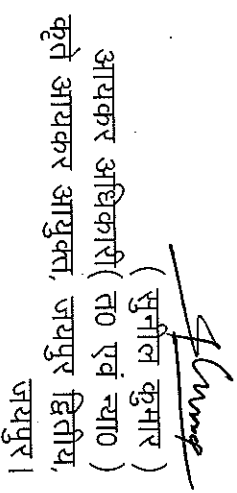 ( सुनील कुमार )
आयकर अधिकारी ( त0 एवं न्या0 )
कृते आयकर आयुक्त, जयपुर द्वितीय,
जयपुर।